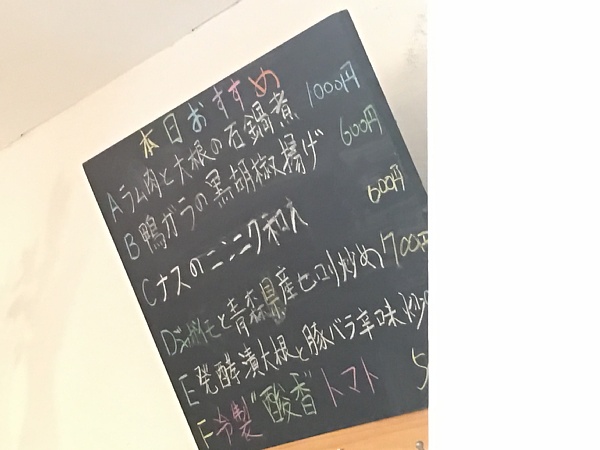 本日おすすめ
Aラム肉と大根の石鍋煮 1000円
B鴨ガラの黒胡椒揚げ 600円
Cナスのニンニク和え 600円
D と青森県産セロリ炒め 700円
E発酵漬大根と豚バラ辛味炒
F冷製"酸香"トマト 5